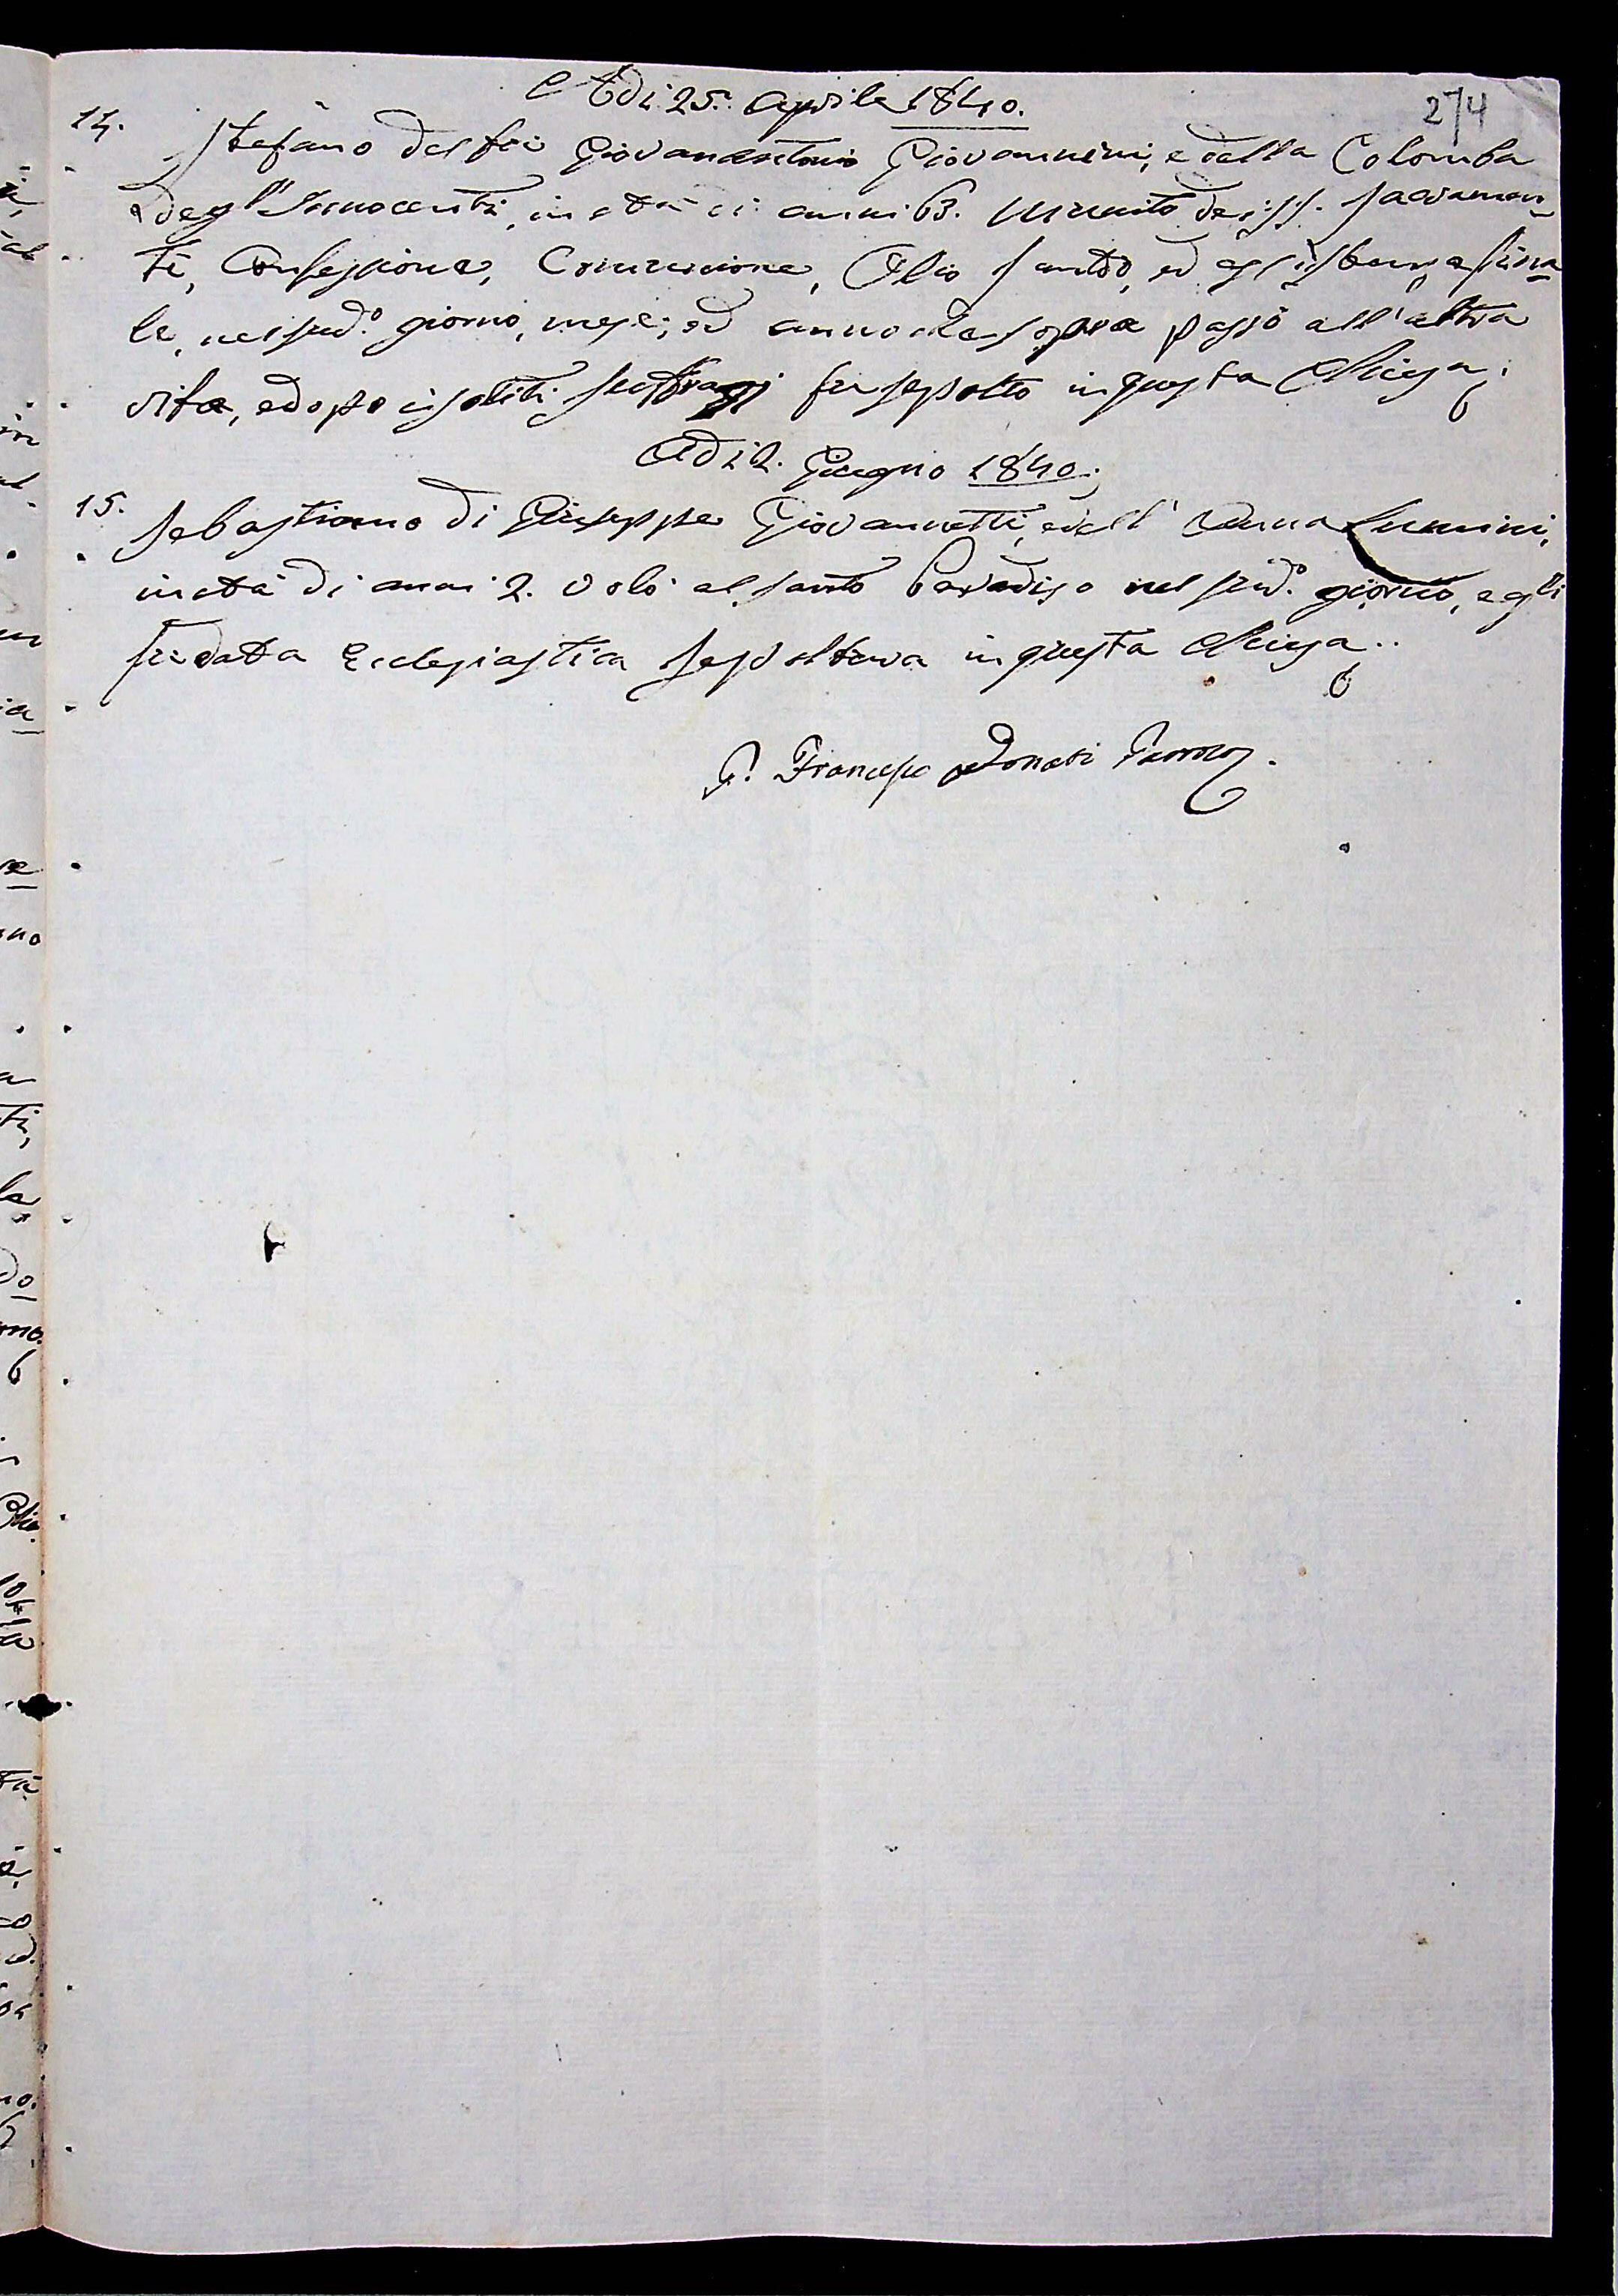 274
Adi 25. Aprile 1840.
14. Stefano del fu Giovanantonio Giovannini, e della Colomba
degl'Innocenti, in età di anni 63. munito dei SS. Sacramen-
ti, Confessione, Comunione, Olio Santo, ed
le, nel sud.º giorno, mese, ed anno di sopra passò all'altra
vita, e dopo i soliti suffragj fu sepolto in questa Chiesa.
Adi 2. Giugno 1840.
15. Sebastiano di Giuseppe Giovannetti, e dell'Anna Lumini,
in età di anni 2. volò al santo Paradiso nel sud.º giorno, e gli
fu data Ecclesiastica Sepoltura in questa Chiesa..
P. Francesco Donati